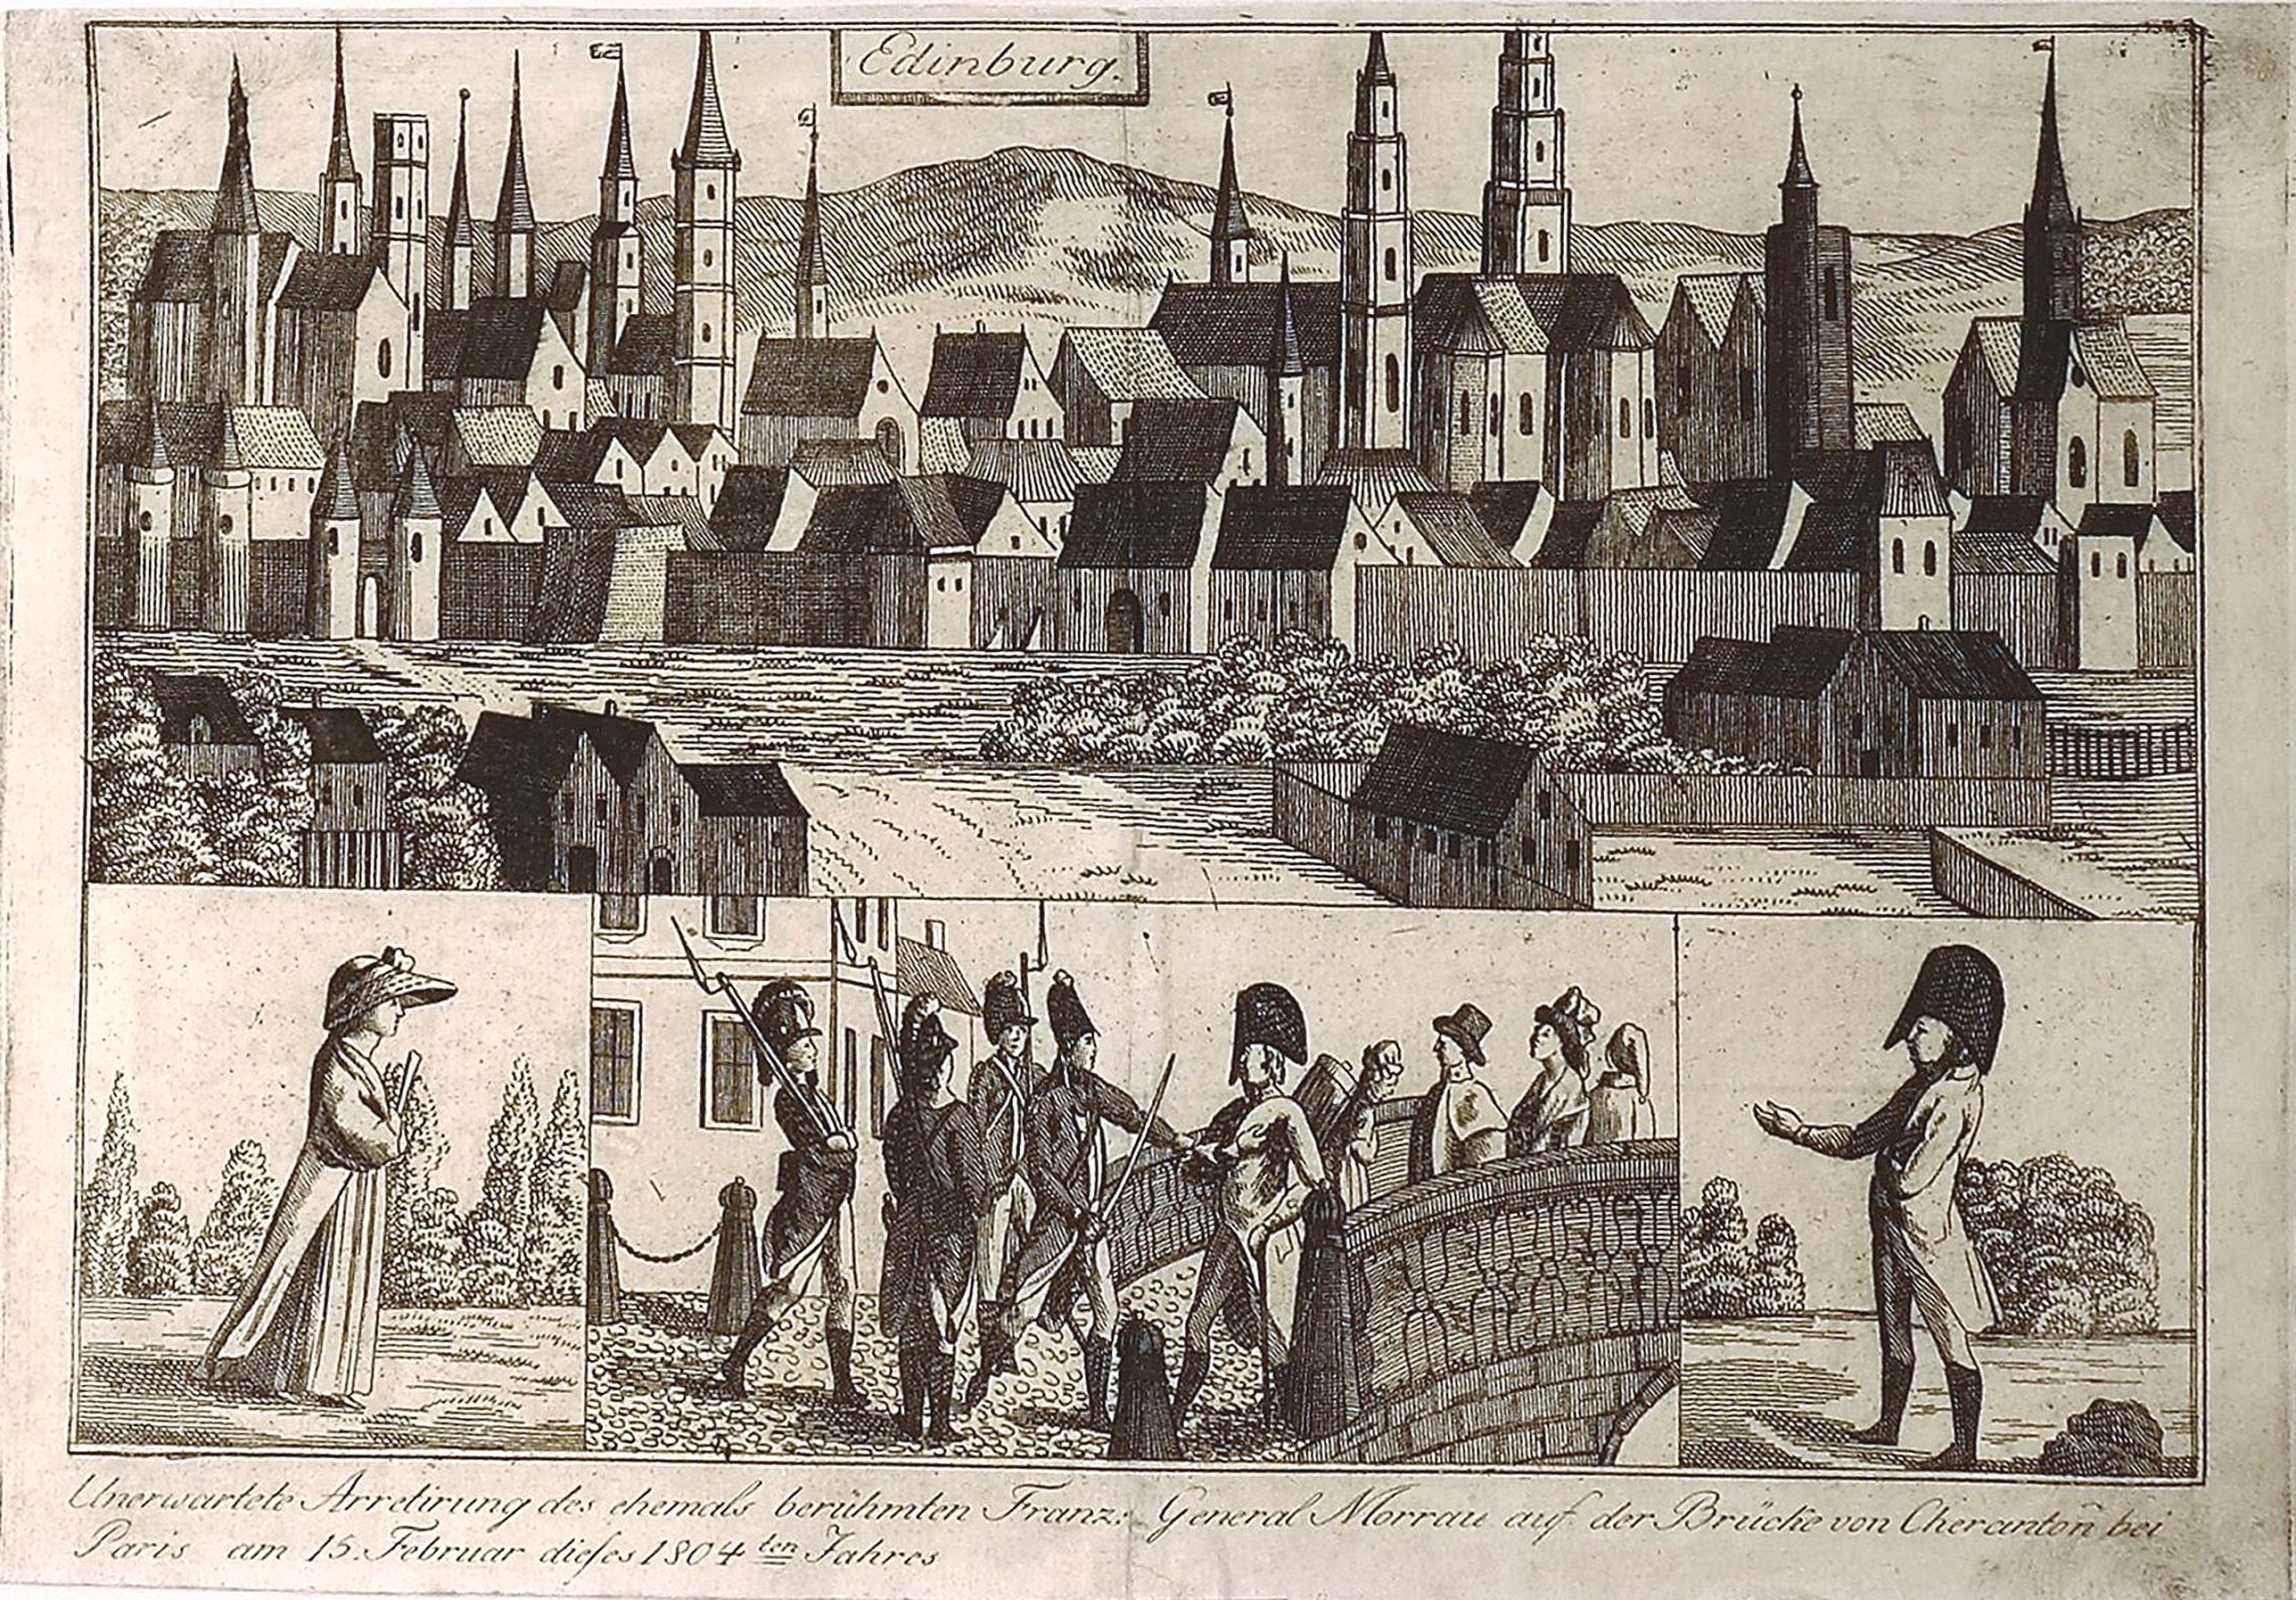 Edinburg.
Unerwartete Arretirung des ehemals berühmten Franz: General Morrau auf der Brücke von Cheranton̄ bei
Paris am 15. Februar dieſes 1804ten Jahres